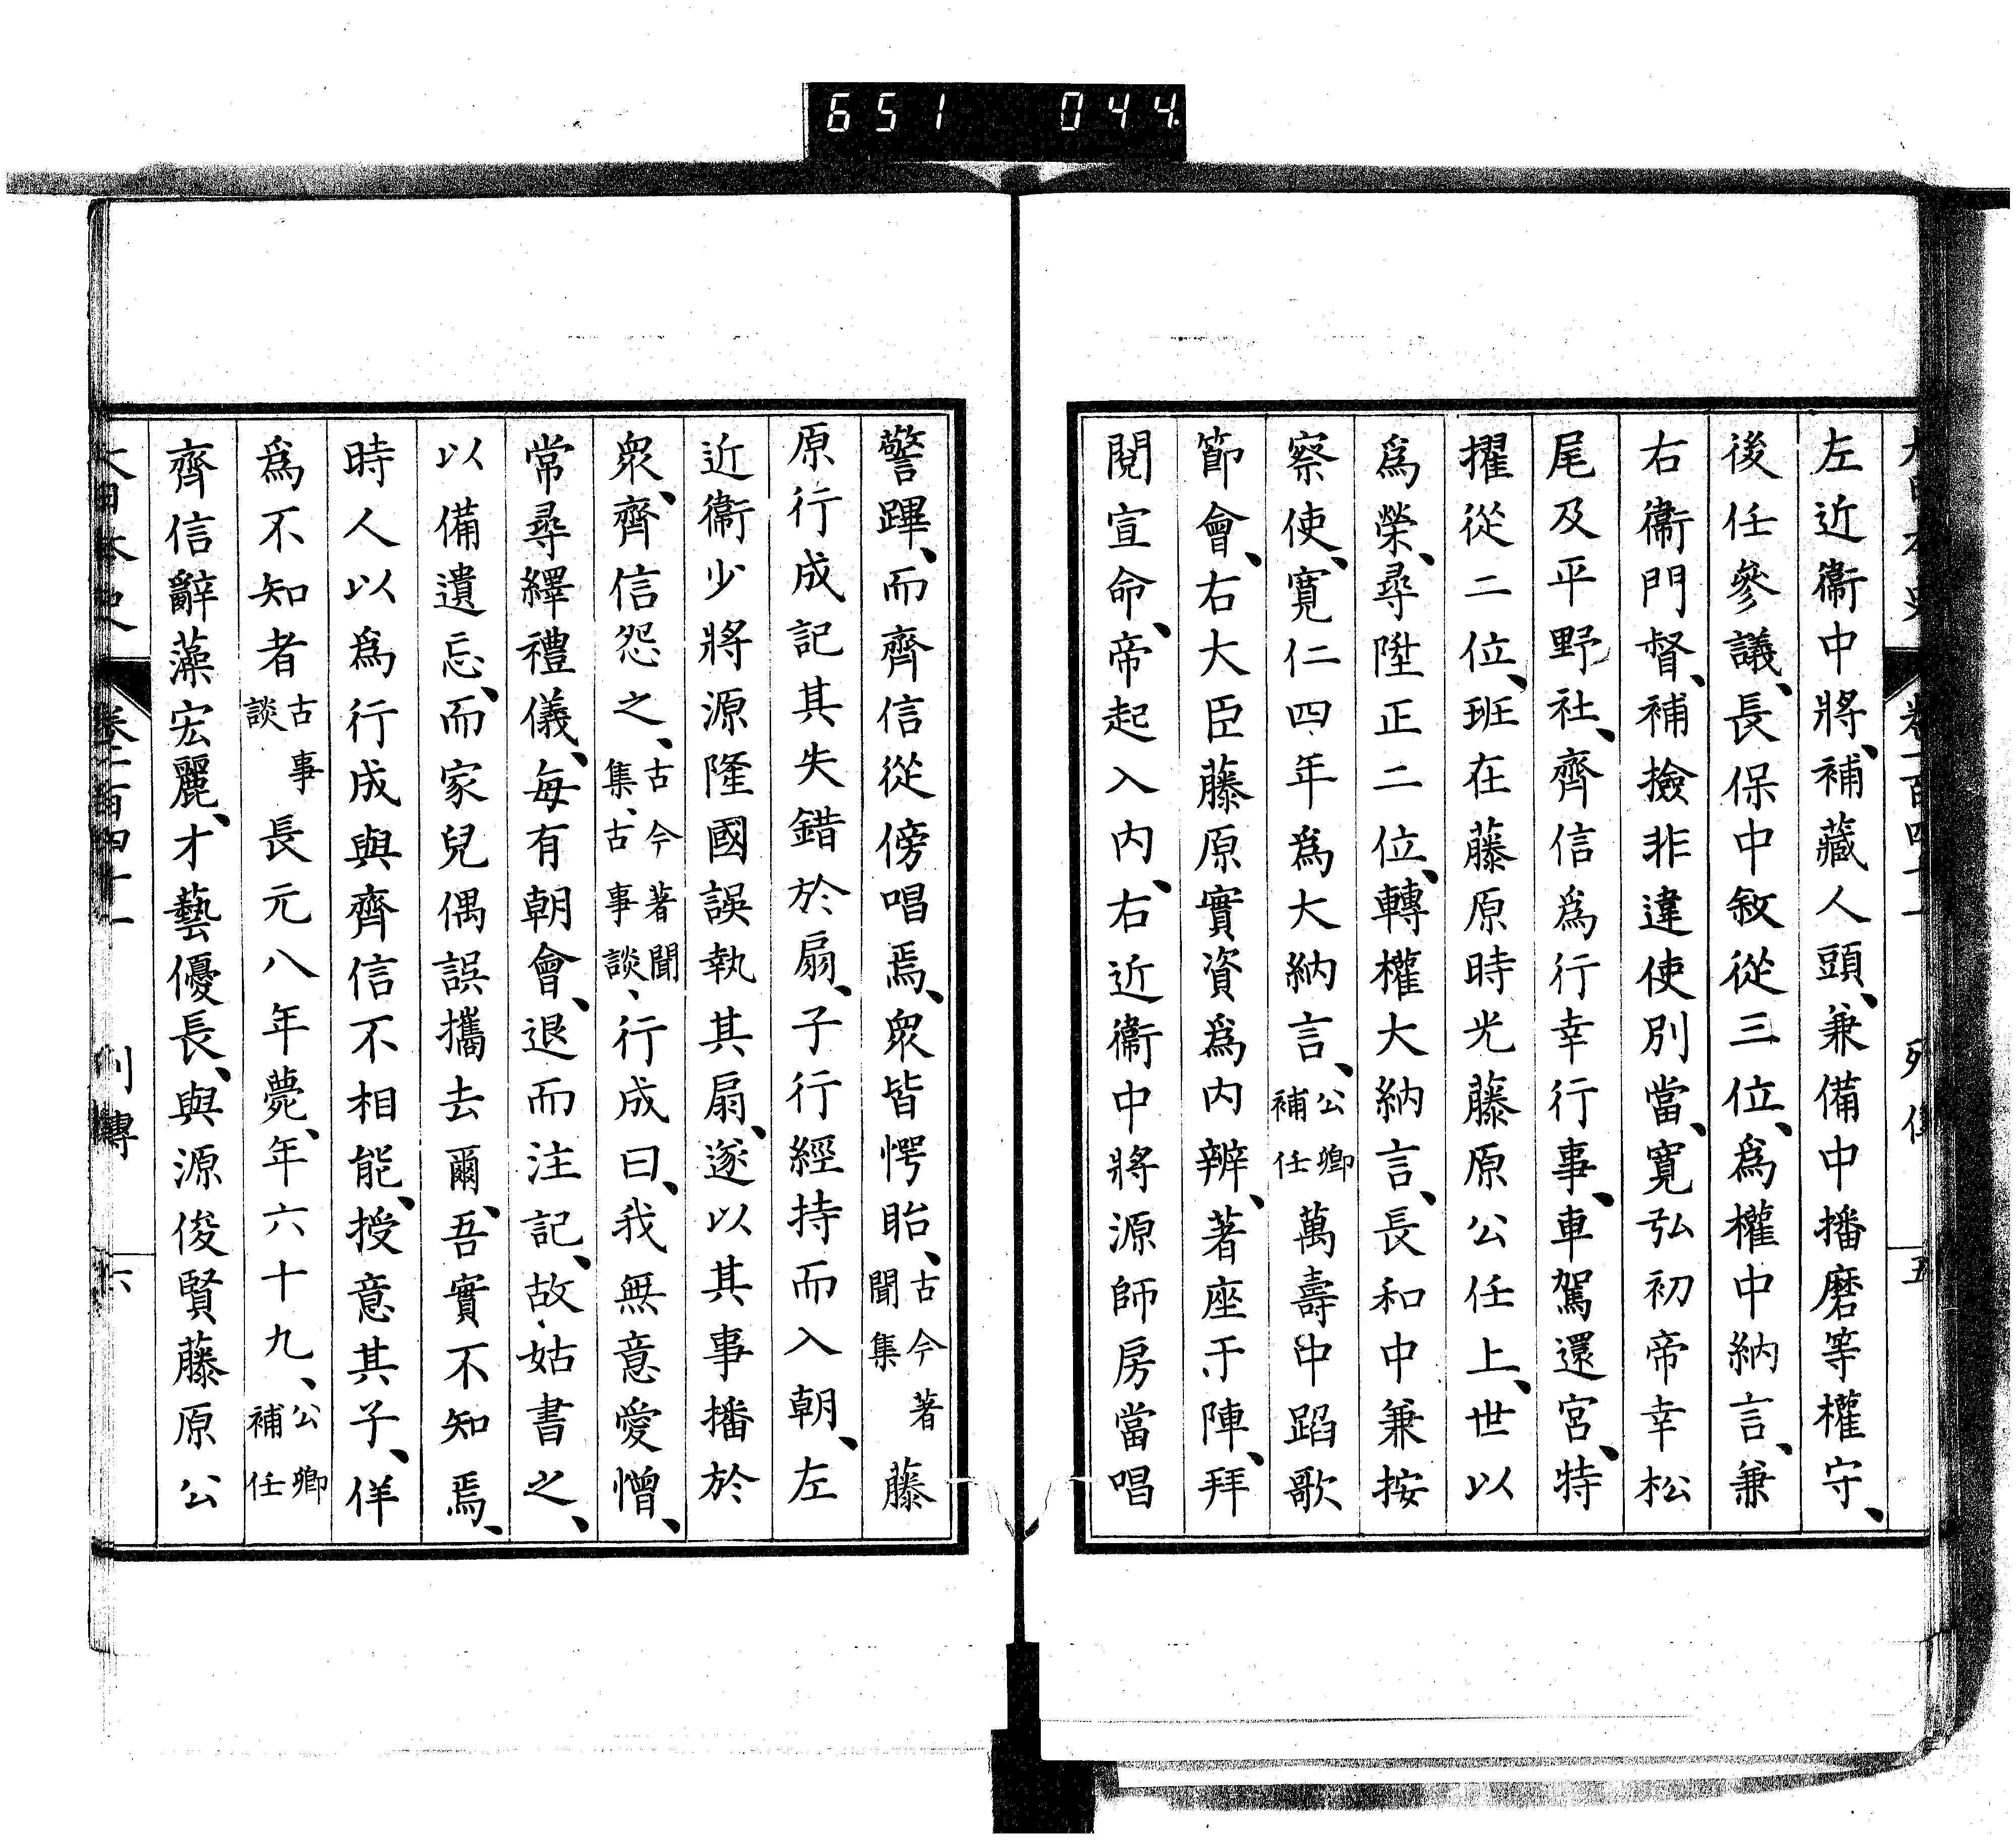 651 044
左近衞中將、補藏人頭、兼備中播磨等權守、
後任參議、長保中敘從三位、爲權中納言、兼
右衞門督、補撿非違使別當、寬弘初帝幸松
尾及平野社、齊信爲行幸行事、車駕還宮、特
擢從二位、班在藤原時光藤原公任上、世以
爲榮、尋陞正二位、轉權大納言、長和中兼按
察使、寬仁四年爲大納言、公卿補任萬壽中蹈歌
節會、右大臣藤原實資爲内辨、著座于陣、拜
閱宣命、帝起入内、右近衞中將源師房當唱
警蹕、而齊信從傍唱焉、衆皆愕眙、古今著聞集藤
原行成記其失錯於扇、子行經持而入朝、左
近衞少將源隆國誤執其扇、遂以其事播於
衆、齊信怨之、古今著聞集、古事談、行成曰、我無意愛憎、
常尋繹禮儀、每有朝會、退而注記、故姑書之、
以備遺忘、而家兒偶誤攜去爾、吾實不知焉、
時人以爲行成與齊信不相能、授意其子、佯
爲不知者古事談長元八年薨、年六十九、公卿補任
齊信辭藻宏麗、才藝優長、與源俊賢藤原公
大日本史 卷一百四十一 列傳 六